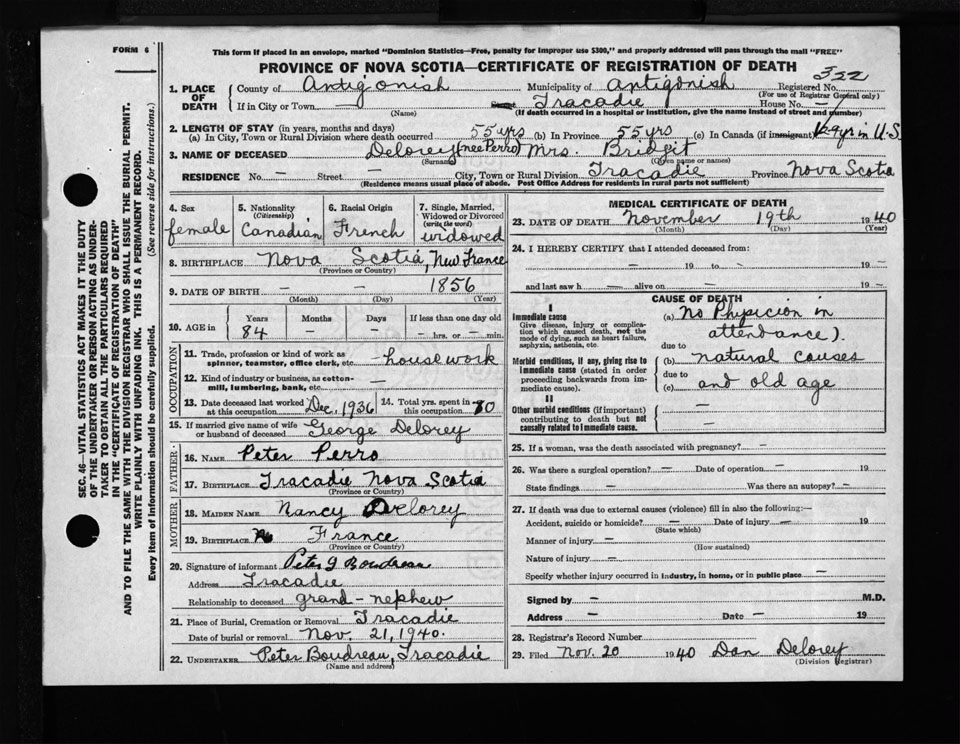 FORM 6
This form if placed in an envelope, marked "Dominion Statistics—Free, penalty for improper use $300," and properly addressed will pass through the mail "FREE"
PROVINCE OF NOVA SCOTIA—CERTIFICATE OF REGISTRATION OF DEATH
SEC. 46—VITAL STATISTICS ACT MAKES IT THE DUTY
OF THE UNDERTAKER OR PERSON ACTING AS UNDER-
TAKER TO OBTAIN ALL THE PARTICULARS REQUIRED
IN THE "CERTIFICATE OF REGISTRATION OF DEATH"
AND TO FILE THE SAME WITH THE DIVISION REGISTRAR WHO SHALL ISSUE THE BURIAL PERMIT.
WRITE PLAINLY WITH UNFADING INK. THIS IS A PERMANENT RECORD.
Every item of information should be carefully supplied. (See reverse side for instructions.)
1. PLACE OF DEATH County of Antigonish Municipality of Antigonish Registered No. 322
(For use of Registrar General only)
If in City or Town — Tracadie House No. —
(Name) (If death occurred in a hospital or institution, give the name instead of street and number)
2. LENGTH OF STAY (in years, months and days)
(a) In City, Town or Rural Division where death occurred 55 yrs (b) In Province 55 yrs (c) In Canada (if immigrant) 29 yr in U.S.
3. NAME OF DECEASED Delorey (nee Perro) Mrs. Bridgit
(Surname) (Given name or names)
RESIDENCE No. — Street — City, Town or Rural Division Tracadie Province Nova Scotia
(Residence means usual place of abode. Post Office Address for residents in rural parts not sufficient)
4. Sex female
5. Nationality (Citizenship) Canadian
6. Racial Origin French
7. Single, Married, Widowed or Divorced (write the word) widowed
8. BIRTHPLACE Nova Scotia, New France
(Province or Country)
9. DATE OF BIRTH — — 1856
(Month) (Day) (Year)
10. AGE in Years 84 Months — Days — If less than one day old — hrs. or — min.
OCCUPATION
11. Trade, profession or kind of work as spinner, teamster, office clerk, etc. housework
12. Kind of industry or business, as cotton-mill, lumbering, bank, etc. —
13. Date deceased last worked at this occupation Dec. 1936 14. Total yrs. spent in this occupation 80
15. If married give name of wife or husband of deceased George Delorey
FATHER
16. NAME Peter Perro
17. BIRTHPLACE Tracadie Nova Scotia
(Province or Country)
MOTHER
18. MAIDEN NAME Nancy Delorey
19. BIRTHPLACE France
(Province or Country)
20. Signature of informant Peter J Boudreau
Address Tracadie
Relationship to deceased grand-nephew
21. Place of Burial, Cremation or Removal Tracadie
Date of burial or removal Nov. 21, 1940.
22. UNDERTAKER Peter Boudreau, Tracadie
(Name and address)
MEDICAL CERTIFICATE OF DEATH
23. DATE OF DEATH November 19th 1940
(Month) (Day) (Year)
24. I HEREBY CERTIFY that I attended deceased from:
— 19 — to — 19 —
and last saw h — alive on — 19 —
CAUSE OF DEATH
I
Immediate cause
Give disease, injury or complication which caused death, not the mode of dying, such as heart failure, asphyxia, asthenia, etc.
(a) No Physicion in attendance).
due to
Morbid conditions, if any, giving rise to immediate cause (stated in order proceeding backwards from immediate cause).
(b) natural causes
due to
(c) and old age
II
Other morbid conditions (if important) contributing to death but not causally related to immediate cause. —
25. If a woman, was the death associated with pregnancy? —
26. Was there a surgical operation? — Date of operation — 19
State findings — Was there an autopsy? —
27. If death was due to external causes (violence) fill in also the following:—
Accident, suicide or homicide? — Date of injury — 19
(State which)
Manner of injury —
(How sustained)
Nature of injury —
Specify whether injury occurred in industry, in home, or in public place —
Signed by — M.D.
Address — Date — 19
28. Registrar's Record Number
29. Filed Nov. 20 1940 Dan Delorey
(Division Registrar)